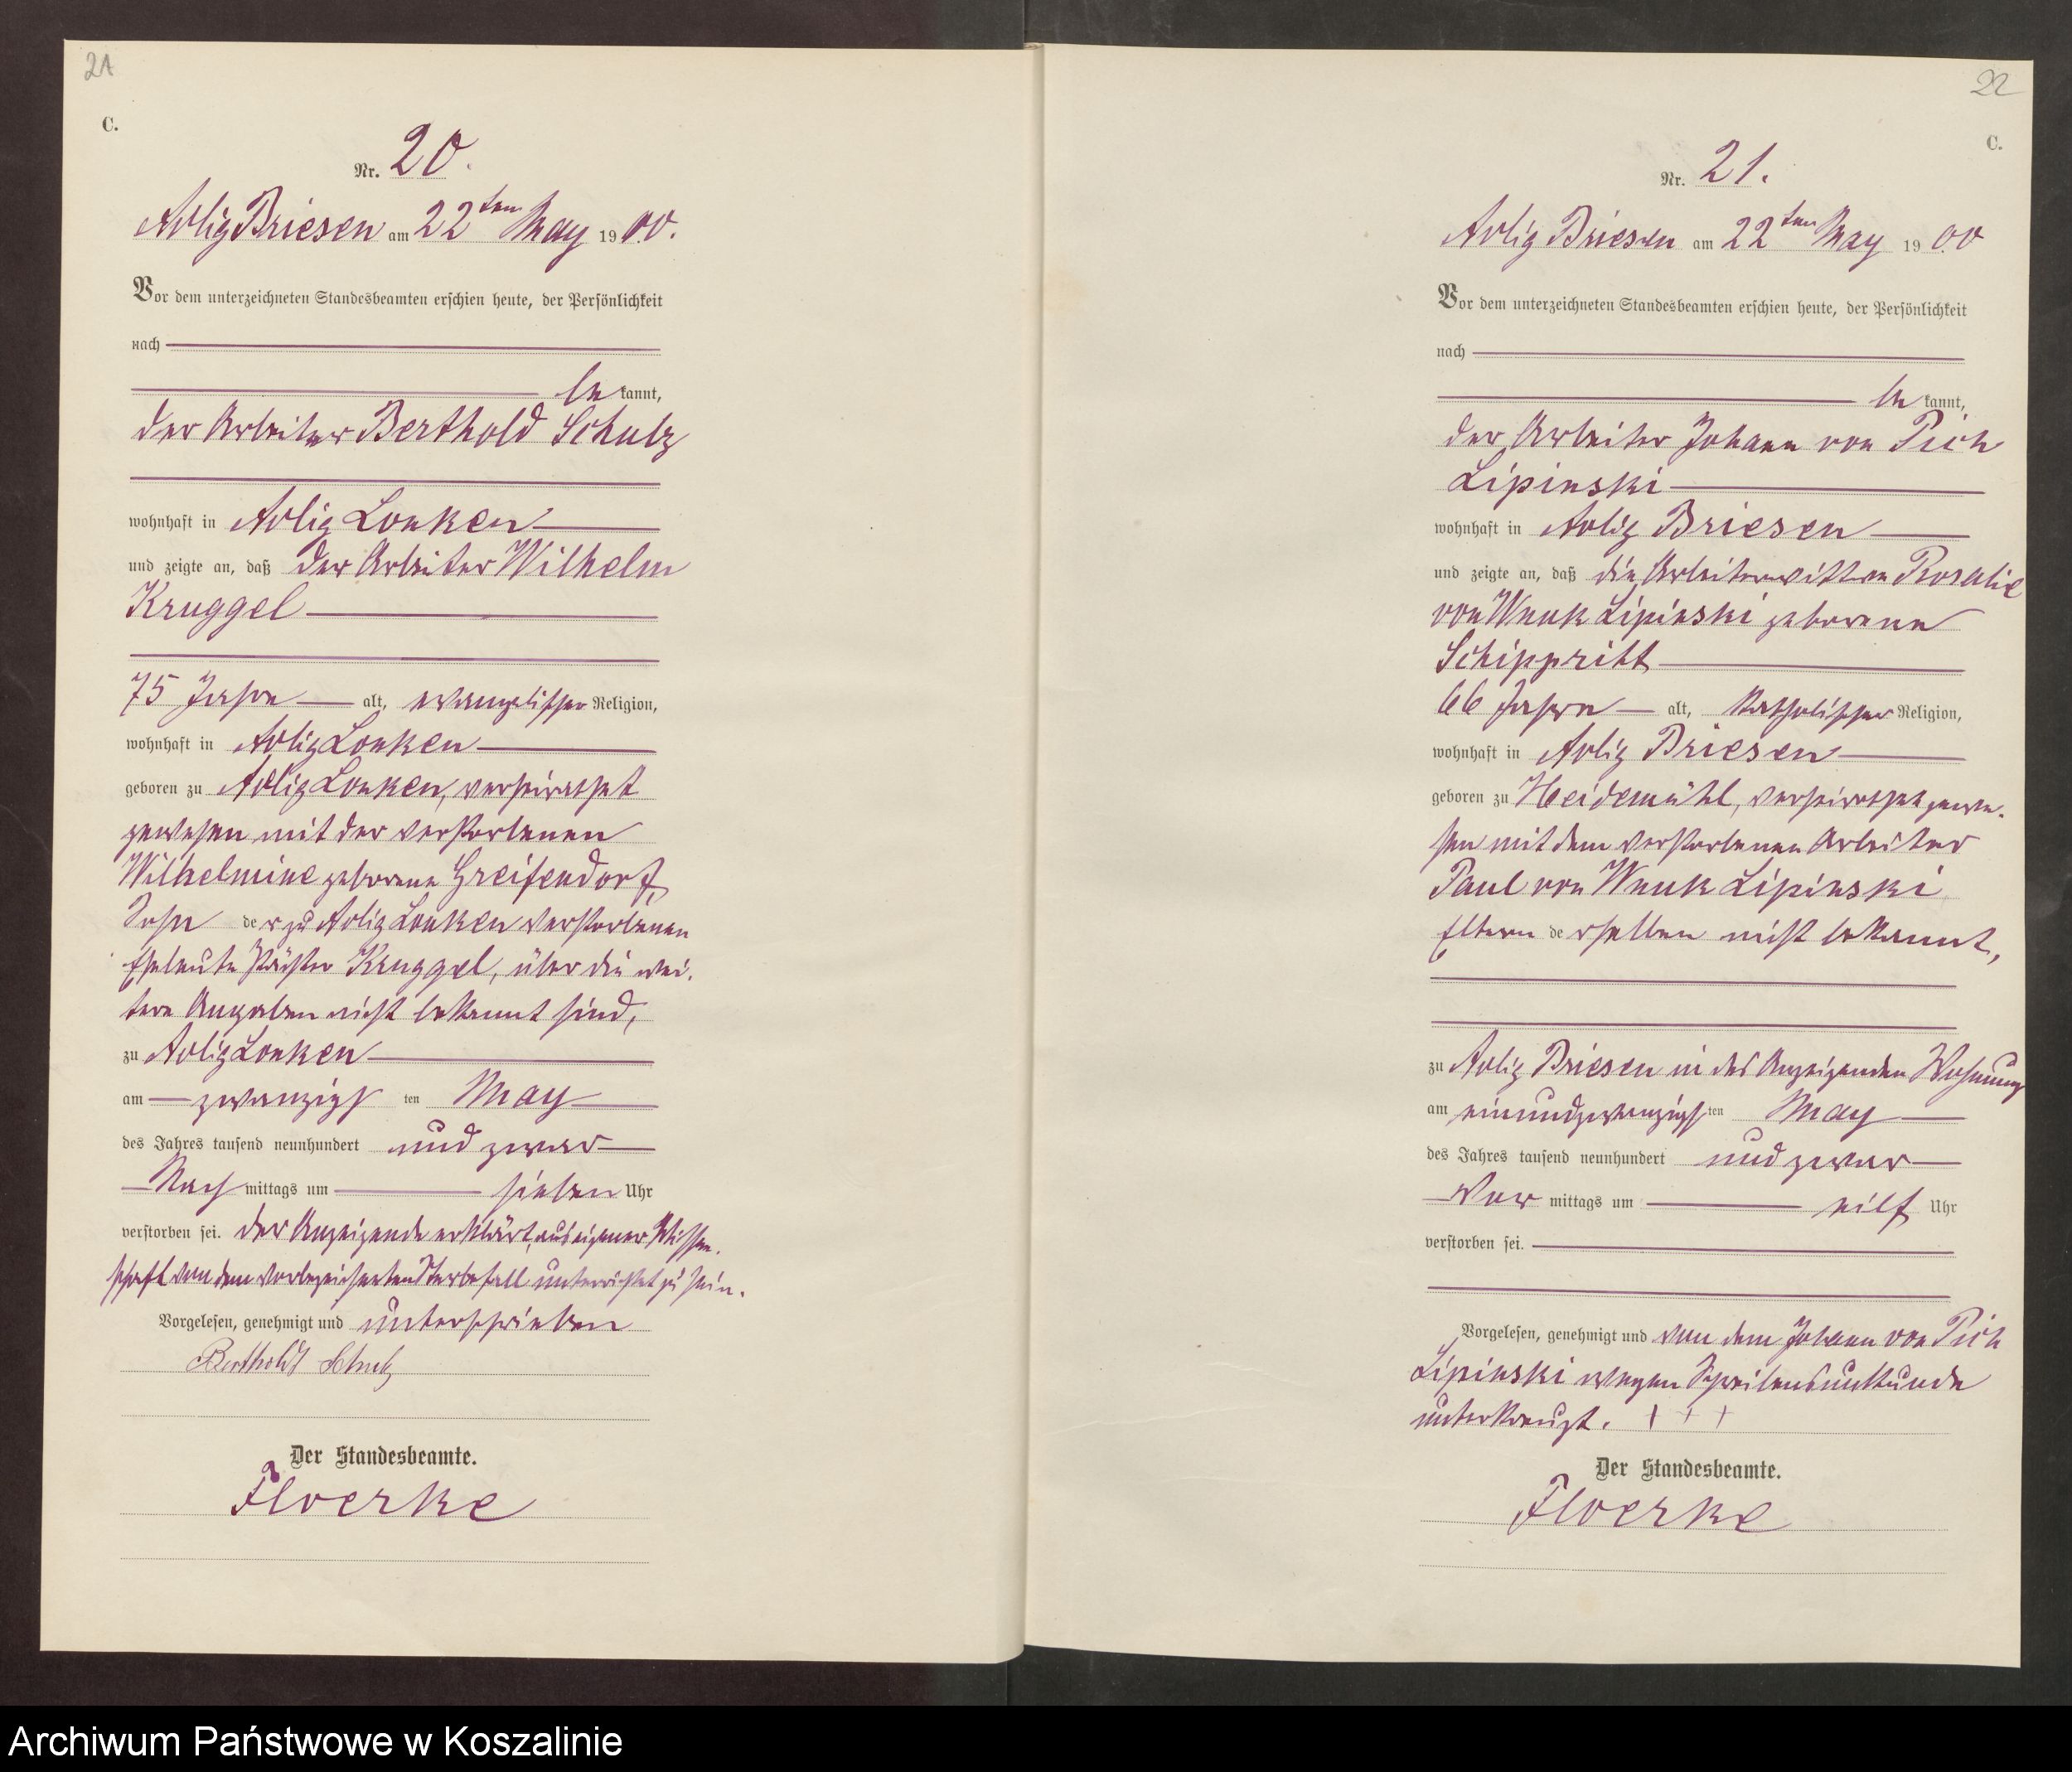 21
C.
Nr. 20.
Adlig Briesen am 22ten May 1900.
Vor dem unterzeichneten Standesbeamten erschien heute, der Persönlichkeit
nach
bekannt,
der Arbeiter Berthold Schulz
wohnhaft in Adlig Lonken
und zeigte an, daß der Arbeiter Wilhelm
Kruggel
75 Jahre alt, evangelischer Religion,
wohnhaft in Adlig Lonken
geboren zu Adlig Lonken, verheirathet
gewesen mit der verstorbenen
Wilhelmine geborene Greifendorf,
Sohn der zu Adlig Lonken verstorbenen
Eheleute Pächter Kruggel, über die wei-
tere Angaben nicht bekannt sind,
zu Adlig Lonken
am zwanzigsten May
des Jahres tausend neunhundert und zwar
Nachmittags um sieben Uhr
verstorben sei. Der Anzeigende erklärt, aus eigener Wissen-
schaft von dem vorbezeichneten Sterbefall unterrichtet zu sein.
Vorgelesen, genehmigt und unterschrieben
Berthold Schulz
Der Standesbeamte.
Floerke
22
C.
Nr. 21.
Adlig Briesen am 22ten May 1900
Vor dem unterzeichneten Standesbeamten erschien heute, der Persönlichkeit
nach
bekannt,
der Arbeiter Johann von Pich
Lipinski
wohnhaft in Adlig Briesen
und zeigte an, daß die Arbeiterwittwe Rosalie
von Wnuk Lipinski geborene
Schippritt
66 Jahre alt, katholischer Religion,
wohnhaft in Adlig Briesen
geboren zu Heidemühl, verheirathet gewe-
sen mit dem verstorbenen Arbeiter
Paul von Wnuk Lipinski
Eltern derselben nicht bekannt,
zu Adlig Briesen in des Anzeigenden Wohnung
am einundzwanzigsten May
des Jahres tausend neunhundert und zwar
Vormittags um eilf Uhr
verstorben sei.
Vorgelesen, genehmigt und von dem Johann von Pich
Lipinski wegen Schreibensunkunde
unterkreuzt. + + +
Der Standesbeamte.
Floerke
Archiwum Państwowe w Koszalinie